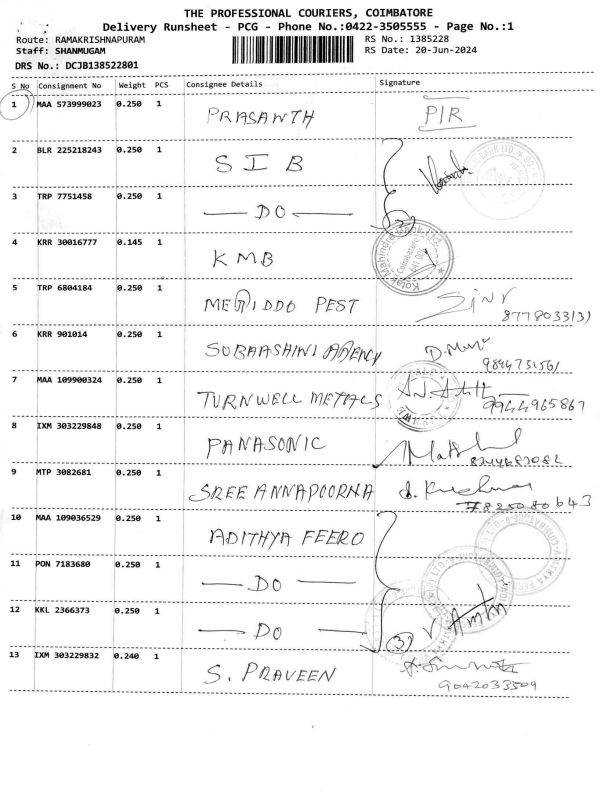 THE PROFESSIONAL COURIERS, COIMBATORE
Delivery Runsheet - PCG - Phone No.:0422-3505555 - Page No.:1
Route: RAMAKRISHNAPURAM RS No.: 1385228
Staff: SHANMUGAM RS Date: 20-Jun-2024
DRS No.: DCJB138522801
S No Consignment No Weight PCS Consignee Details Signature
1 MAA 573999023 0.250 1 PRASANTH PIR
2 BLR 225218243 0.250 1 SIB
3 TRP 7751458 0.250 1 — DO — 2
4 KRR 30016777 0.145 1 KMB Kotak Mahindra Bank Ltd. Coimbatore
5 TRP 6804184 0.250 1 MEGIDDO PEST
8778033131
6 KRR 901014 0.250 1 SUBHASHINI AGENCY
9894731561
7 MAA 109900324 0.250 1 TURNWELL METALS
9944965867
8 IXM 303229848 0.250 1 PANASONIC
9 MTP 3082681 0.250 1 SREE ANNAPOORNA
10 MAA 109036529 0.250 1 ADITHYA FEERO
11 PON 7183680 0.250 1 — DO —
12 KKL 2366373 0.250 1 — DO — 3
13 IXM 303229832 0.240 1 S. PRAVEEN
9042033509